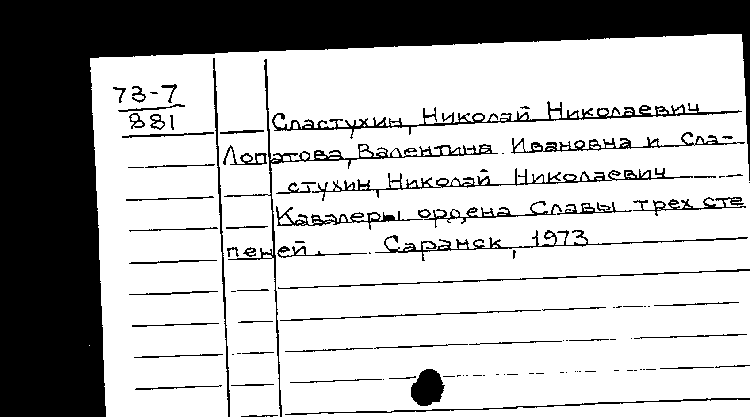 73-7
881
Сластухин, Николай Николаевич
Лопатова, Валентина Ивановна и Сла-
стухин, Николай Николаевич
Кавалеры ордена Славы трех сте
пеней. Саранск, 1973